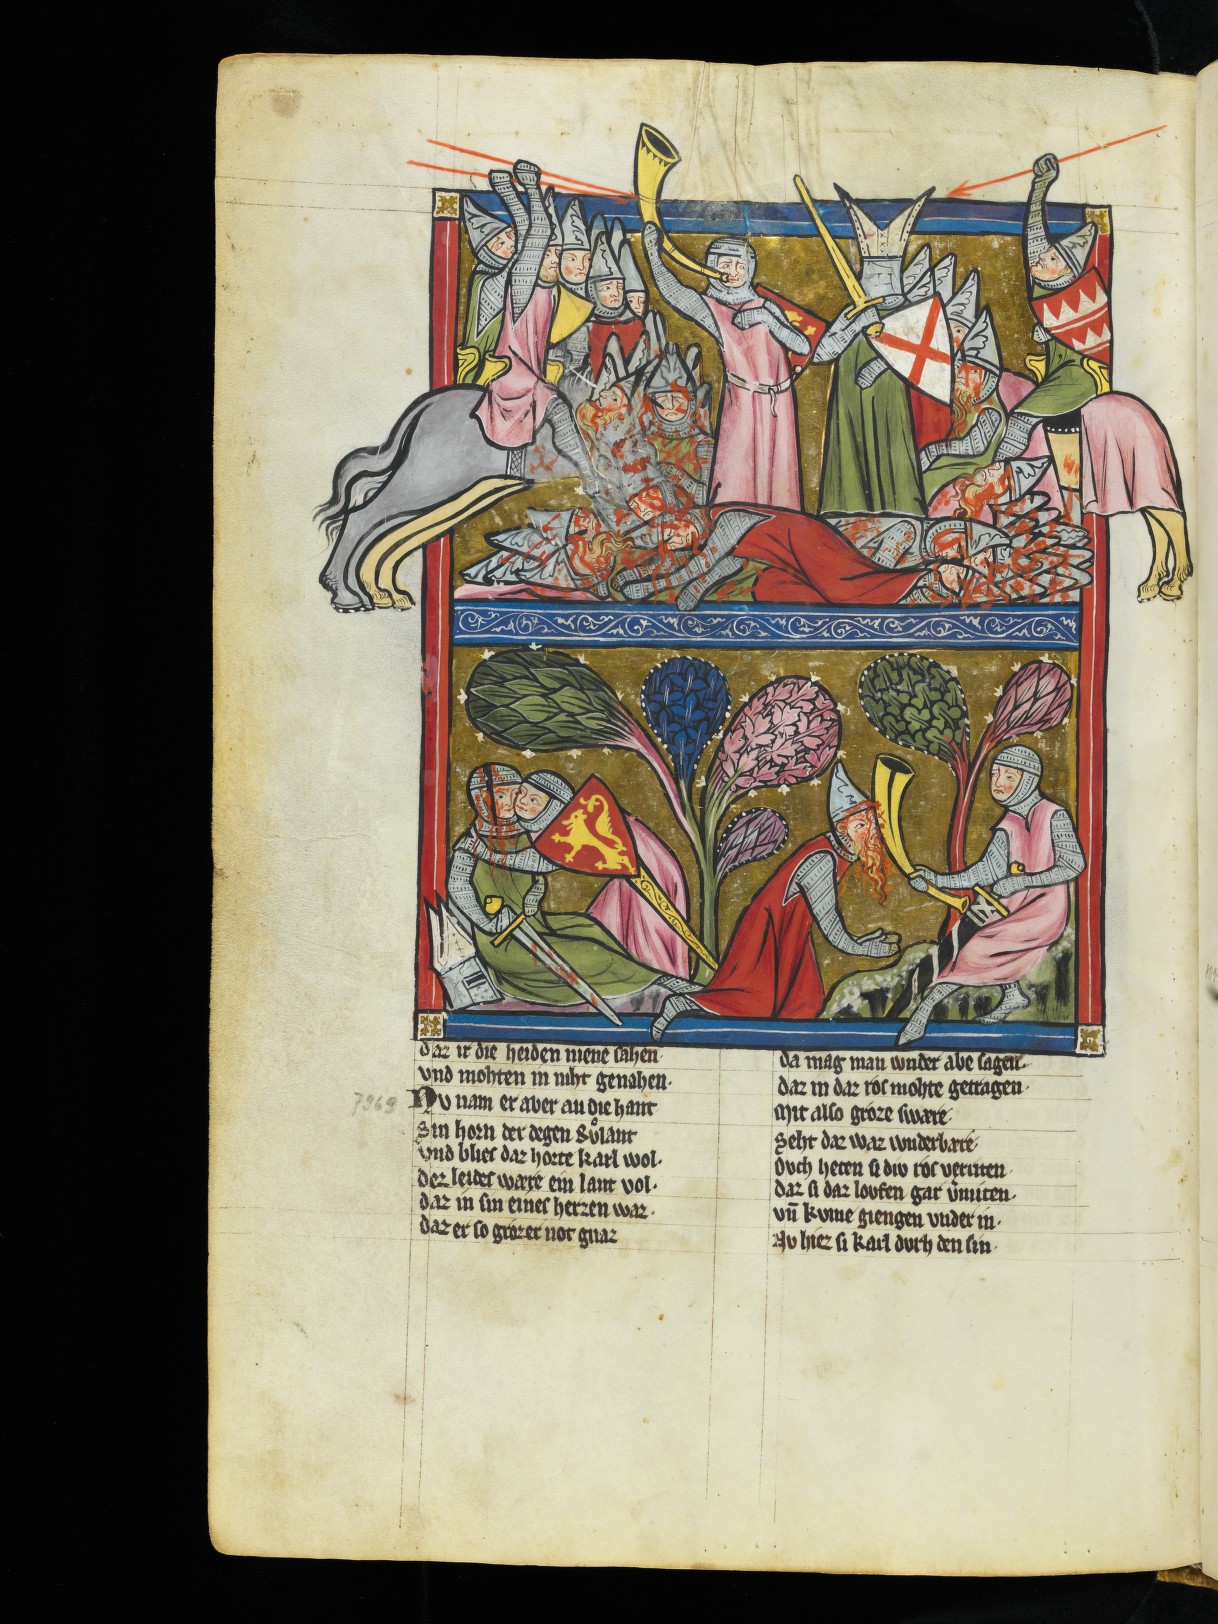 daz ir die heiden niene sahen·
vnd mohten in niht genahen·
7969
Nv nam er aber an die hant
Sin horn der degen Rvͦlant
vnd blies daz horte karl wol·
dez leides wære ein lant vol·
daz in sin eines herzen waz·
daz er so grozer not gnaz
da mag man wnder abe sagen·
daz in daz ros mohte getragen·
Mit also groze swære·
Seht daz waz wnderbære·
Doch heten si div ros
daz si daz lovfen gar
vn̄ kvme giengen vnder in·
Nv hiez si karl dvrch den sin·